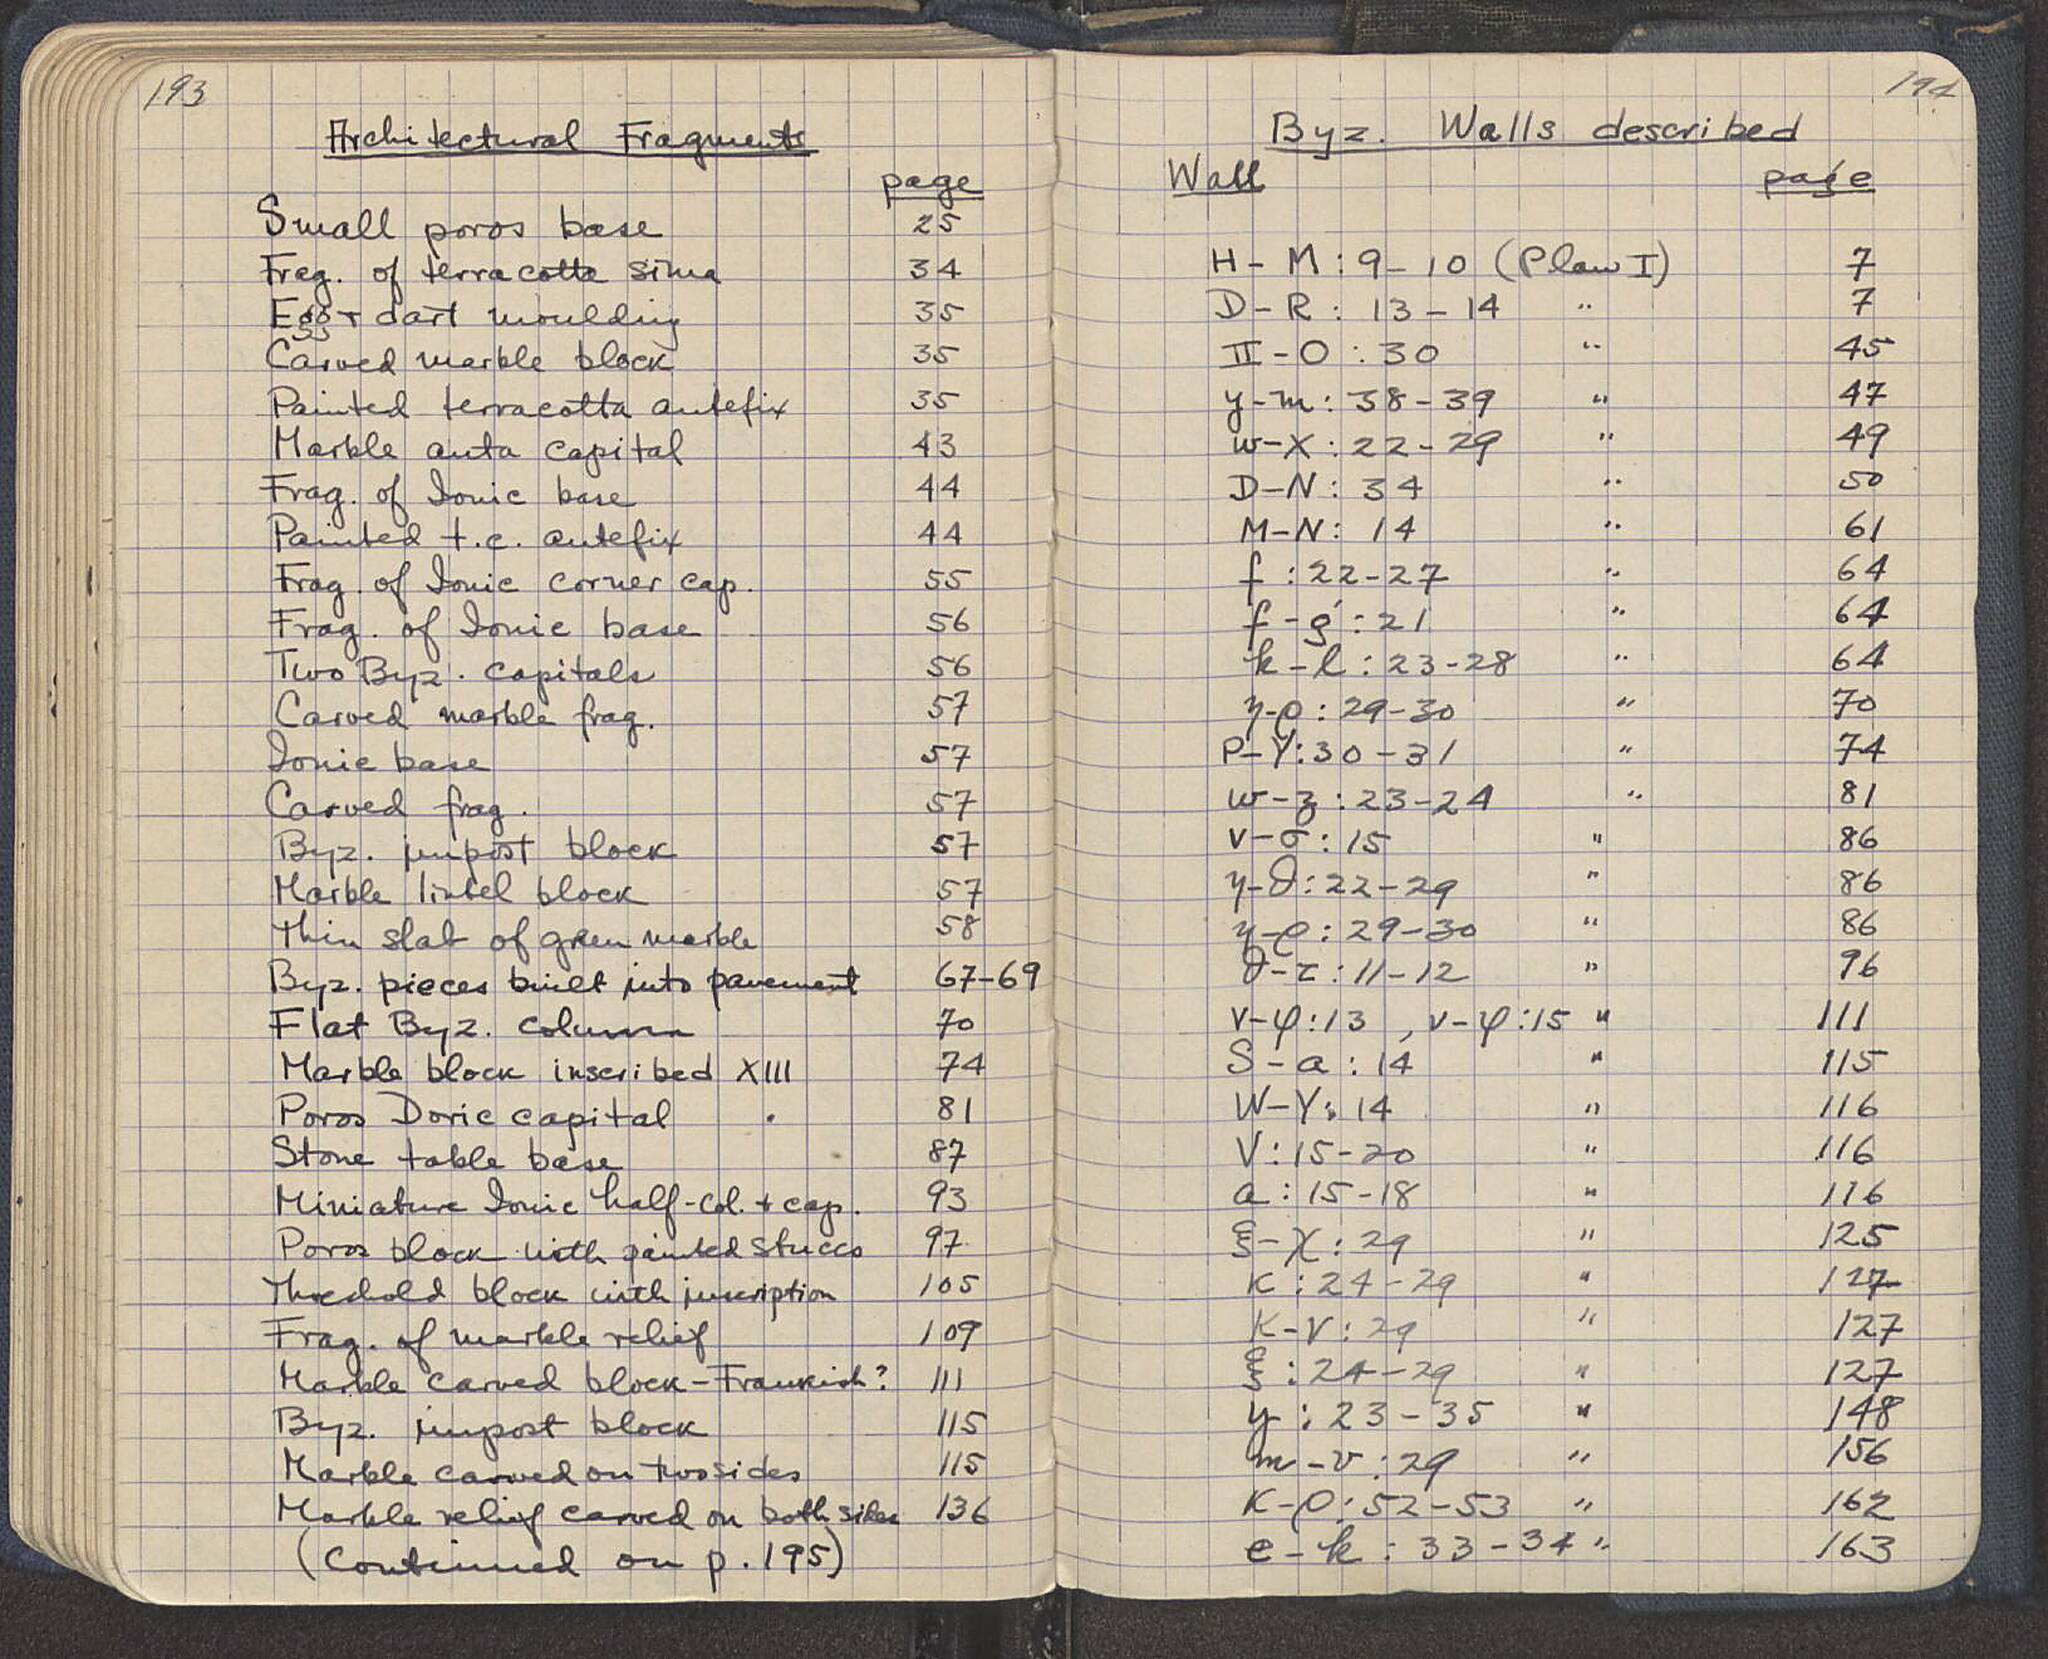 193
Architectural Fragments
page
Small poros base 25
Frag. of terracotta sima 34
Egg + dart moulding 35
Carved marble block 35
Painted terracotta antefix 35
Marble anta capital 43
Frag. of Ionic base 44
Painted t.c. antefix 44
Frag. of Ionic corner cap. 55
Frag. of Ionic base 56
Two Byz. capitals 56
Carved marble frag. 57
Ionic base 57
Carved frag. 57
Byz. impost block 57
Marble lintel block 57
Thin slab of green marble 58
Byz. pieces built into pavement 67-69
Flat Byz. column 70
Marble block inscribed XIII 74
Poros Doric capital 81
Stone table base 87
Miniature Ionic half-col. + cap. 93
Poros block with painted stucco 97
Threshold block with inscription 105
Frag. of marble relief 109
Marble carved block - Frankish? 111
Byz. impost block 115
Marble carved on two sides 115
Marble relief carved on both sides 136
(Continued on p. 195)
194
Byz. Walls described
Wall page
H-M: 9-10 (Plan I) 7
D-R: 13-14 " 7
II-O: 30 " 45
y-m: 38-39 " 47
w-X: 22-29 " 49
D-N: 34 " 50
M-N: 14 " 61
f: 22-27 " 64
f-g': 21 " 64
k-l: 23-28 " 64
η-ρ: 29-30 " 70
P-Y: 30-31 " 74
w-z: 23-24 " 81
ν-σ: 15 " 86
η-θ: 22-29 " 86
η-ρ: 29-30 " 86
θ-τ: 11-12 " 96
ν-φ: 13, ν-φ: 15 " 111
S-a: 14 " 115
W-Y: 14 " 116
V: 15-20 " 116
a: 15-18 " 116
ξ-χ: 29 " 125
K: 24-29 " 127
K-V: 29 " 127
ξ: 24-29 " 127
y: 23-35 " 148
m-v: 29 " 156
K-ρ: 52-53 " 162
e-k: 33-34 " 163